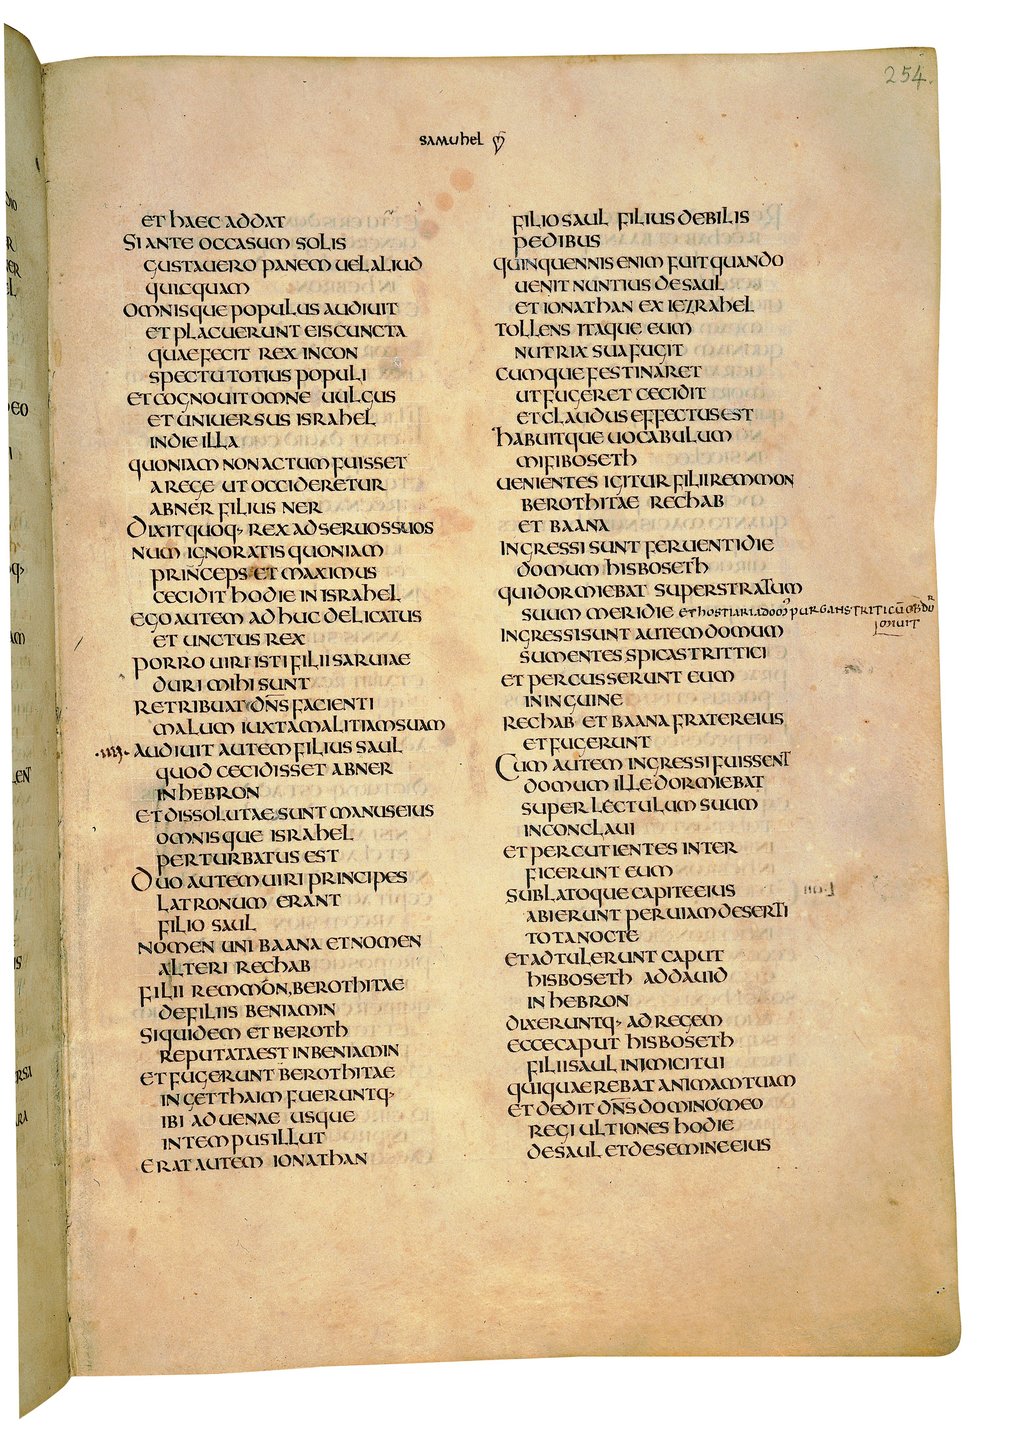 254.
SAMUHEL
ET HAEC ADDAT
SI ANTE OCCASUM SOLIS
GUSTAUERO PANEM UEL ALIUD
QUICQUAM
OMNISQUE POPULUS AUDIUIT
ET PLACUERUNT EIS CUNCTA
QUAE FECIT REX IN CON
SPECTU TOTIUS POPULI
ET COGNOUIT OMNE UULGUS
ET UNIUERSUS ISRAHEL
IN DIE ILLA
QUONIAM NON ACTUM FUISSET
A REGE UT OCCIDERETUR
ABNER FILIUS NER
DIXIT QUOQ· REX AD SERUOS SUOS
NUM IGNORATIS QUONIAM
PRINCEPS ET MAXIMUS
CECIDIT HODIE IN ISRAHEL
EGO AUTEM ADHUC DELICATUS
ET UNCTUS REX
PORRO UIRI ISTI FILII SARUIAE
DURI MIHI SUNT
RETRIBUAT DN̄S FACIENTI
MALUM IUXTA MALITIAM SUAM
·IIII· AUDIUIT AUTEM FILIUS SAUL
QUOD CECIDISSET ABNER
IN HEBRON
ET DISSOLUTAE SUNT MANUS EIUS
OMNISQUE ISRAHEL
PERTURBATUS EST
DUO AUTEM UIRI PRINCIPES
LATRONUM ERANT
FILIO SAUL
NOMEN UNI BAANA ET NOMEN
ALTERI RECHAB
FILII REMMON, BEROTHITAE
DE FILIIS BENIAMIN
SIQUIDEM ET BEROTH
REPUTATA EST IN BENIAMIN
ET FUGERUNT BEROTHITAE
IN GETTHAIM FUERUNTQ·
IBI ADUENAE USQUE
IN TEMPUS ILLUT
ERAT AUTEM IONATHAN
FILIO SAUL FILIUS DEBILIS
PEDIBUS
QUINQUENNIS ENIM FUIT QUANDO
UENIT NUNTIUS DE SAUL
ET IONATHAN EX IEZRAHEL
TOLLENS ITAQUE EUM
NUTRIX SUA FUGIT
CUMQUE FESTINARET
UT FUGERET CECIDIT
ET CLAUDUS EFFECTUS EST
HABUITQUE UOCABULUM
MIFIBOSETH
UENIENTES IGITUR FILII REMMON
BEROTHITAE RECHAB
ET BAANA
INGRESSI SUNT FERUENTI DIE
DOMUM HISBOSETH
QUI DORMIEBAT SUPER STRATUM
SUUM MERIDIE ET HOSTIARIA DOM̄ PURGANS TRITICŪ OBDOR
MIUIT
INGRESSI SUNT AUTEM DOMUM
SUMENTES SPICAS TRITTICI
ET PERCUSSERUNT EUM
IN INGUINE
RECHAB ET BAANA FRATER EIUS
ET FUGERUNT
CUM AUTEM INGRESSI FUISSENT
DOMUM ILLE DORMIEBAT
SUPER LECTULUM SUUM
IN CONCLAUI
ET PERCUTIENTES INTER
FICERUNT EUM
SUBLATOQUE CAPITE EIUS
ABIERUNT PER UIAM DESERTI
TOTA NOCTE
ET ADTULERUNT CAPUT
HISBOSETH AD DAUID
IN HEBRON
DIXERUNTQ· AD REGEM
ECCE CAPUT HISBOSETH
FILII SAUL INIMICI TUI
QUI QUAEREBAT ANIMAM TUAM
ET DEDIT DN̄S DOMINO MEO
REGI ULTIONES HODIE
DE SAUL ET DE SEMINE EIUS